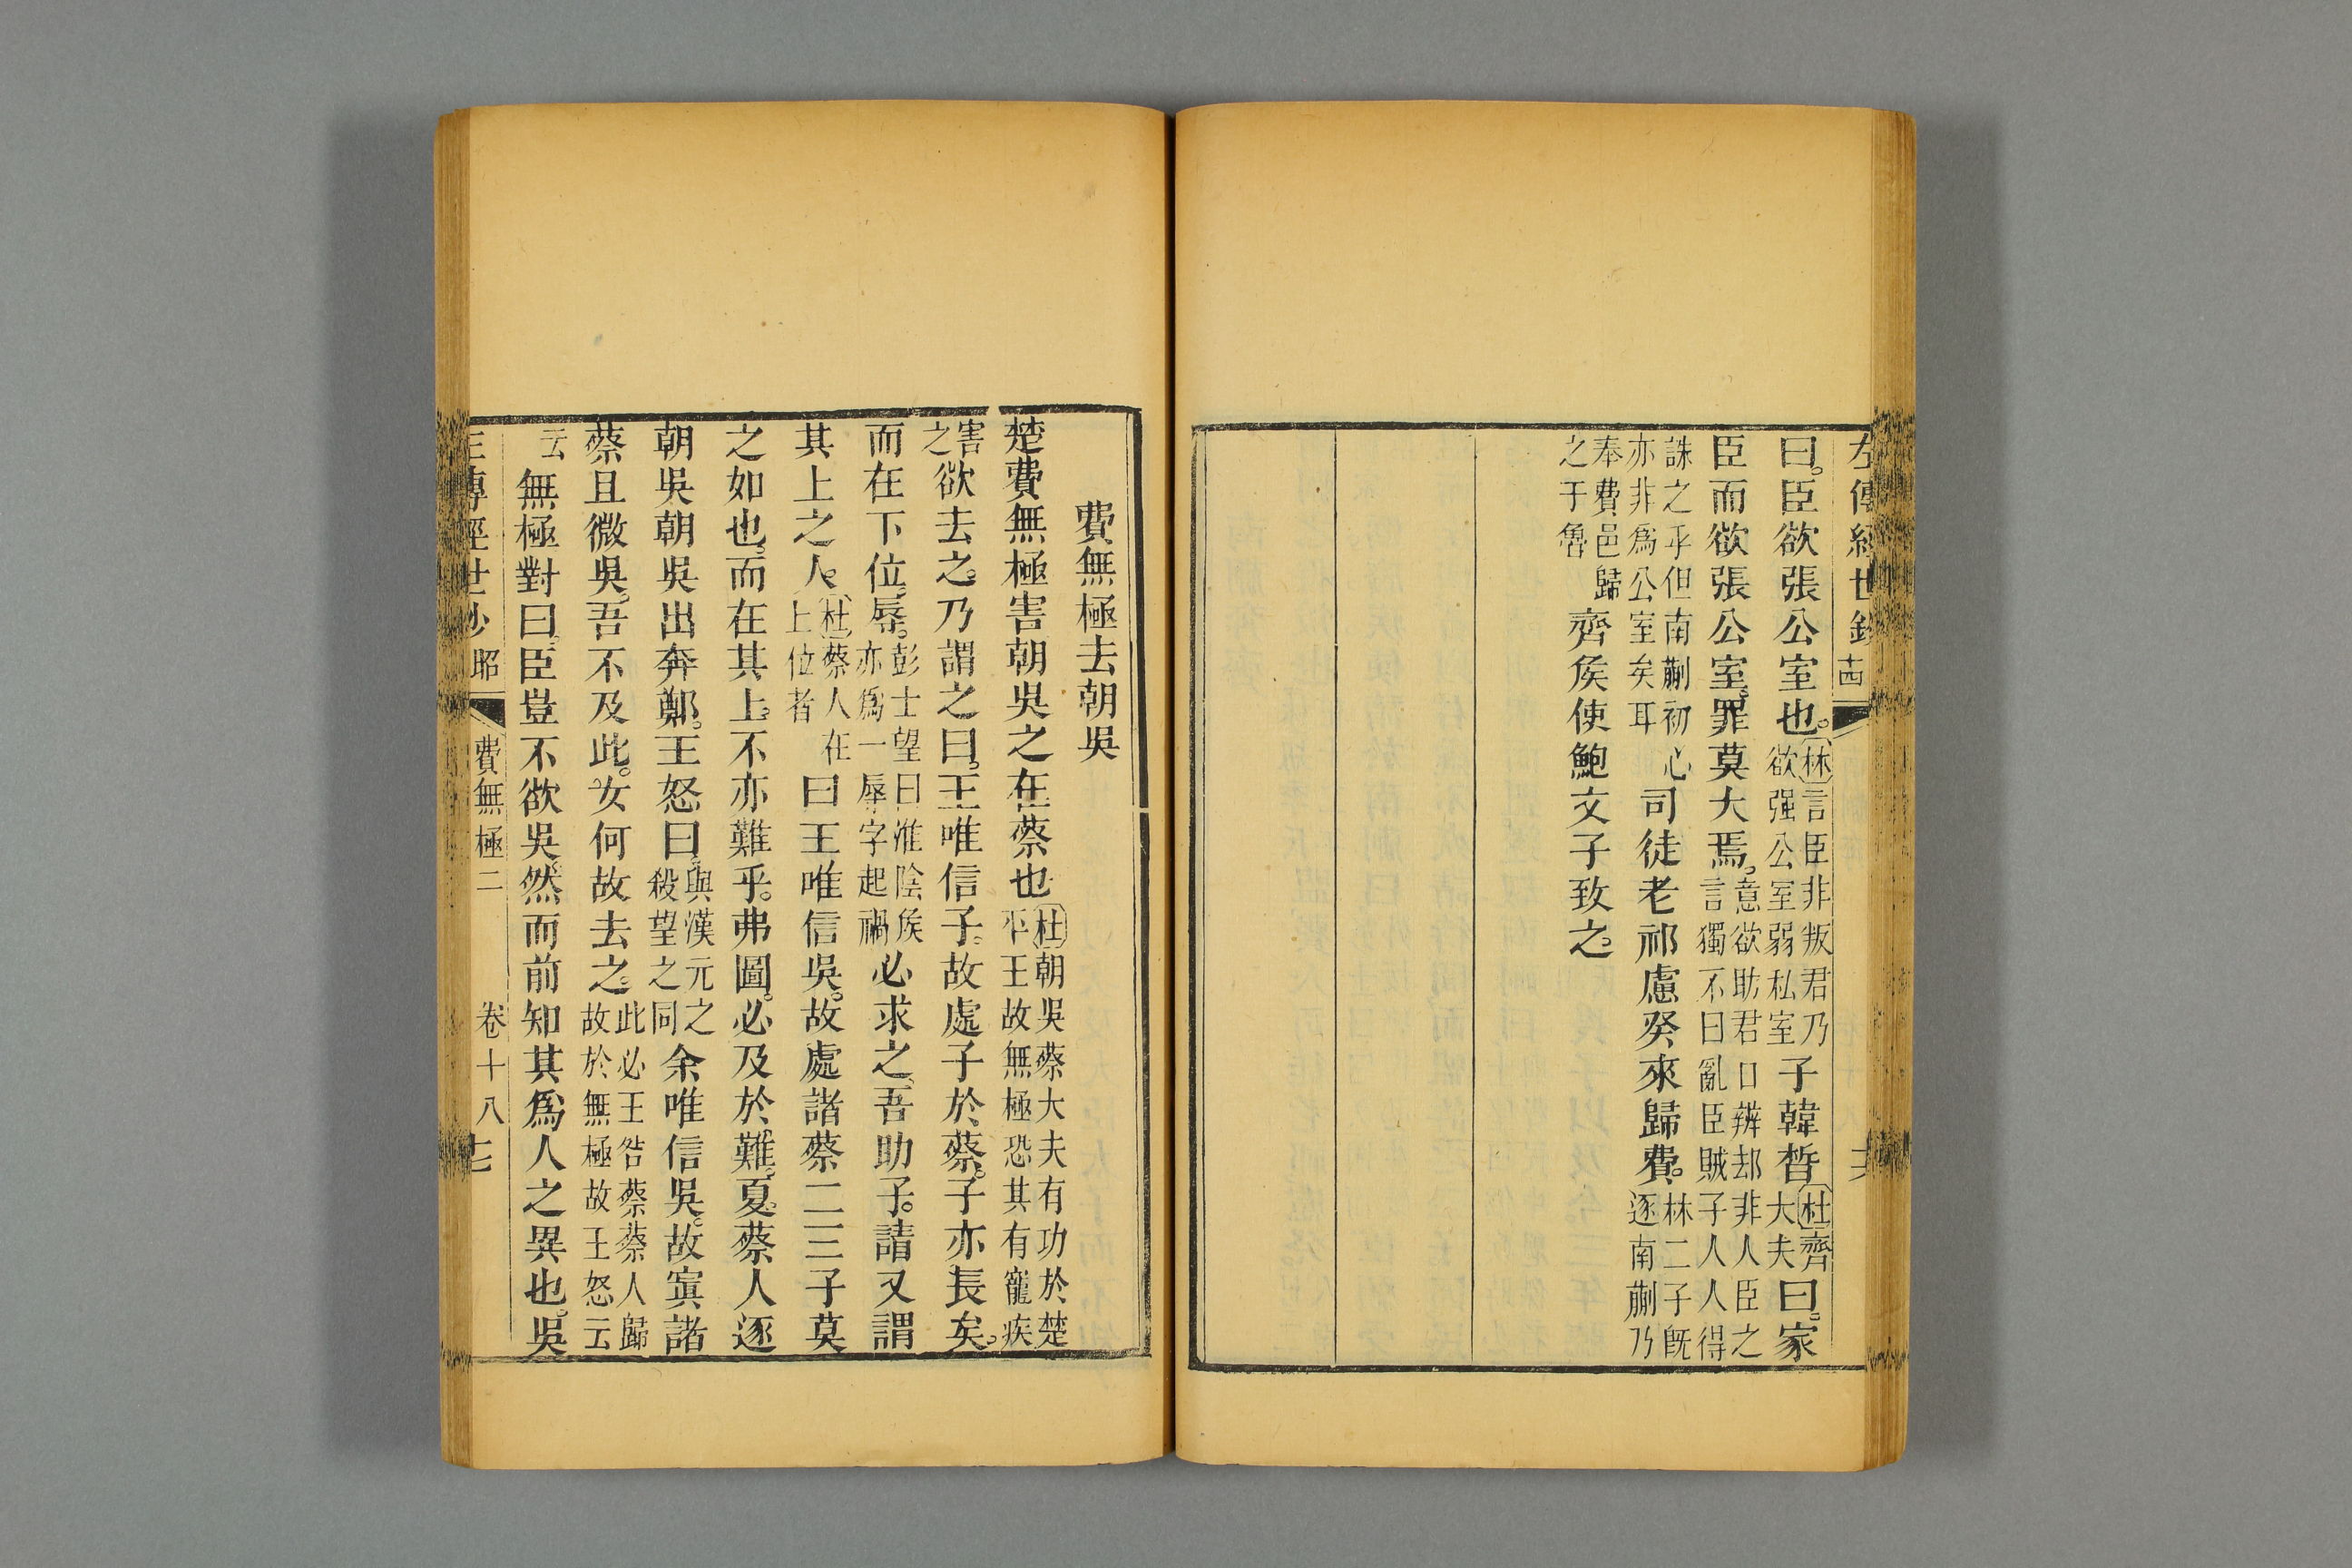 左傳經世鈔
曰臣欲張公室也林言臣非叛君乃欲强公室弱私室子韓晳杜齊大夫曰家
臣而欲張公室罪莫大焉意欲助君口辨却非人臣之言獨不曰亂臣賊子人人得
誅之乎但南蒯初心亦非爲公室矣耳司徒老祁慮癸來歸費林二子旣逐南蒯乃
奉費邑歸之于魯齊侯使鮑文子致之
費無極去朝吳
楚費無極害朝吳之在蔡也杜朝吳蔡大夫有功於楚平王故無極恐其有寵疾
害之欲去之乃謂之曰王唯信子故處子於蔡子亦長矣
而在下位辱彭士望曰淮陰侯亦爲一辱字起禍必求之吾助子請又謂
其上之人杜蔡人在上位者曰王唯信吳故處諸蔡二三子莫
之如也而在其上不亦難乎弗圖必及於難夏蔡人逐
朝吳朝吳出奔鄭王怒曰與漢元之殺望之同余唯信吳故寘諸
蔡且微吳吾不及此女何故去之此必王咎蔡蔡人歸故於無極故王怒云
云無極對曰臣豈不欲吳然而前知其爲人之異也吳
左傳經世鈔 昭 費無極二 卷十八 十七